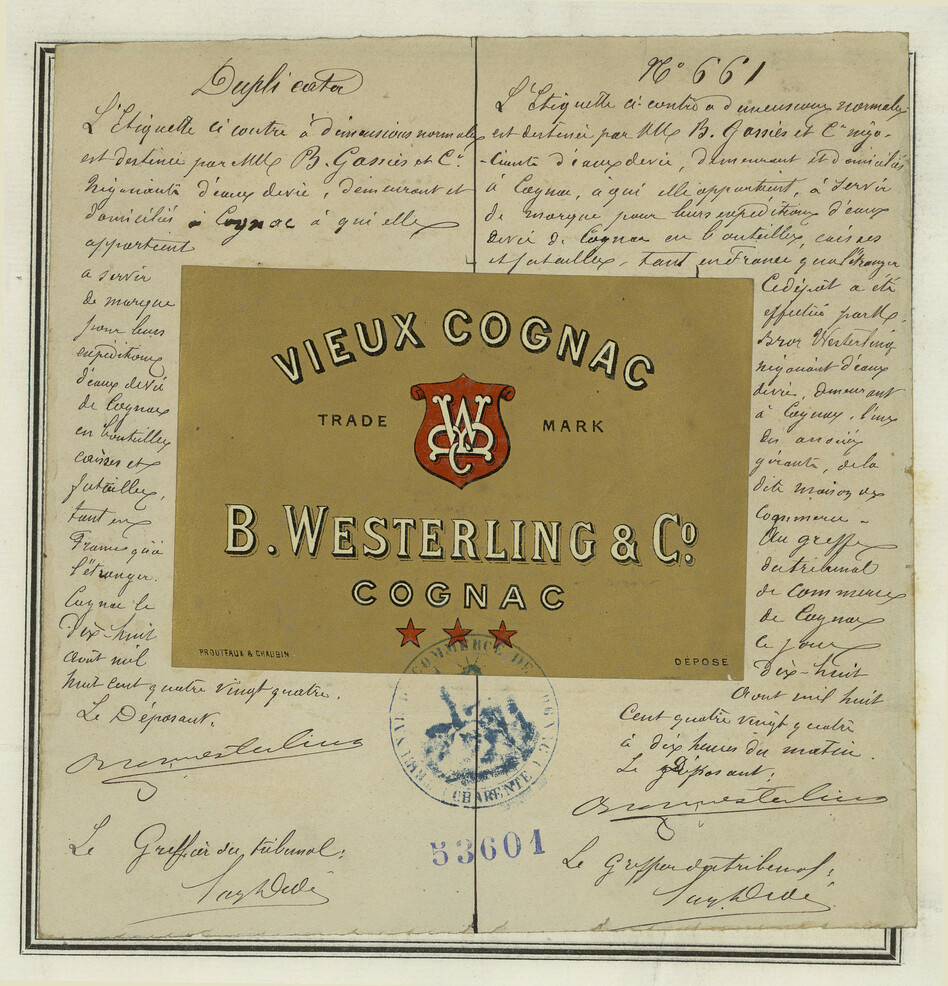 Duplicata
L'Étiquette ci contre à dimensions normales
est destinée par MM B. Gassies et Cie
Négociants d'eaux de vie, demeurant et
domiciliés à Cognac à qui elle
appartient
à servir
de marque
pour leurs
expéditions
d'eaux de vie
de Cognac
en bouteilles
caisses et
futailles,
tant en
France qu'à
l'étranger.
Cognac le
Dix-huit
août mil
huit cent quatre vingt quatre.
Le Déposant.
Bror Westerling
Le Greffier du tribunal:
No 661
L'Étiquette ci-contre à dimensions normales
est destinée par MM B. Gassies et Cie négo-
-ciants d'eaux de vie, demeurant et domiciliés
à Cognac, à qui elle appartient, à servir
de marque pour leurs expéditions d'eaux
de vie de Cognac en bouteilles, caisses
et futailles, tant en France qu'à l'étranger
Ce dépôt a été
effectué par M.
Bror Westerling
négociant d'eaux
de vie, demeurant
à Cognac, l'un
des associés
gérants, de la
dite maison de
Commerce.
Au greffe
du tribunal
de Commerce
de Cognac
ce jour
Dix-huit
août mil huit
cent quatre vingt quatre
à dix heures du matin.
Le Déposant.
Bror Westerling
Le Greffier du tribunal:
VIEUX COGNAC
TRADE MARK
WBC
B. WESTERLING & Co.
COGNAC
PROUTEAUX & CHAUBIN
DÉPOSÉ
TRIBUNAL DE COMMERCE DE COGNAC
(CHARENTE)
53601